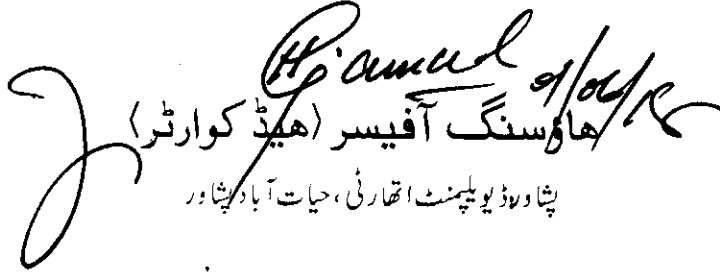 هاؤسنگ آفیسر (هیڈ کوارٹر)
پشاور ڈیویلپمنٹ اتھارٹی، حیات آباد پشاور